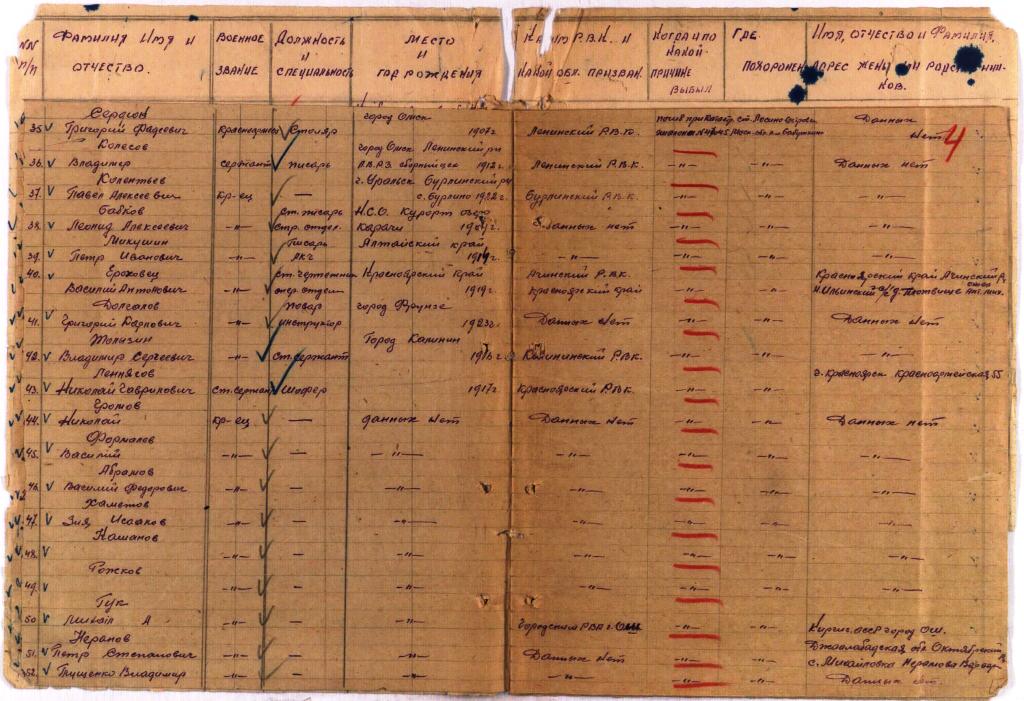 NN п/п ФАМИЛИЯ ИМЯ И ОТЧЕСТВО. ВОЕННОЕ ЗВАНИЕ ДОЛЖНОСТЬ И СПЕЦИАЛЬНОСТЬ МЕСТО И ГОД РОЖДЕНИЯ КАКИМ Р.В.К. И КАКОЙ ОБЛ. ПРИЗВАН. КОГДА И ПО КАКОЙ ПРИЧИНЕ ВЫБЫЛ ГДЕ ПОХОРОНЕН ИМЯ, ОТЧЕСТВО И ФАМИЛИЯ, АДРЕС ЖЕНЫ ИЛИ РОДСТВЕННИКОВ.
4
Сердюк город Омск погиб при ст. Данных
35. Григорий Фадеевич Красноармеец Столяр 1907г. Ленинский Р.В.К. нет
Колесов город Омск Ленинский
36. Владимир сержант писарь 1912г. Ленинский Р.В.К. —"— —"— Данных нет
Колентьев г. Уральск Бурлинский
37. Павел Алексеевич кр-ец — с. Бурлино 1922г. Бурлинский Р.В.К. —"— —"— —"—
Бабков ст. писарь Н.С.О. Курорт озеро
38. Леонид Алексеевич —"— стр. отдел. Карачи Данных нет —"— —"— —"—
Микушин Писарь Алтайский край
39. Петр Иванович —"— АХЧ 1914г. —"— —"— —"— —"—
Ероховец ст. чертежник Красноярский край Ачинский Р.В.К. Красноярский край Ачинский
40. Василий Антонович —"— опер. отдел 1919г. Красноярский край —"— —"—
Долгалов Повар город Фрунзе
41. Григорий Карпович —"— инструктор 1923г. Данных нет —"— —"— Данных нет
Город Калинин
42. Владимир Сергеевич —"— Ст. сержант 1916г. Калининский Р.В.К. —"— —"— —"—
г. Красноярск Красноармейская 55
43. Николай Гаврилович Ст. сержант Шофер 1917г. Красноярский Р.В.К. —"— —"—
Громов
44. Николай кр-ец — данных нет Данных нет —"— —"— Данных нет
Формалов
45. Василий —"— — —"— —"— —"— —"— —"—
Абрамов
46. Василий Федорович —"— — —"— —"— —"— —"— —"—
Хаметов
47. Зия Исааков —"— — —"— —"— —"— —"— —"—
Кашанов
48. —"— — —"— —"— —"— —"— —"—
Рожков
49. —"— — —"— —"— —"— —"— —"—
Гук
50 Михаил А —"— — —"— Городским РВК г. Ош —"— —"— Киргиз. ССР город Ош.
Неранов Джалалабадская обл. Октябрьский
51. Петр Степанович —"— — —"— Данных нет —"— —"— с. Михайловка
52. Глущенко Владимир —"— — —"— —"— —"— —"— Данных нет.